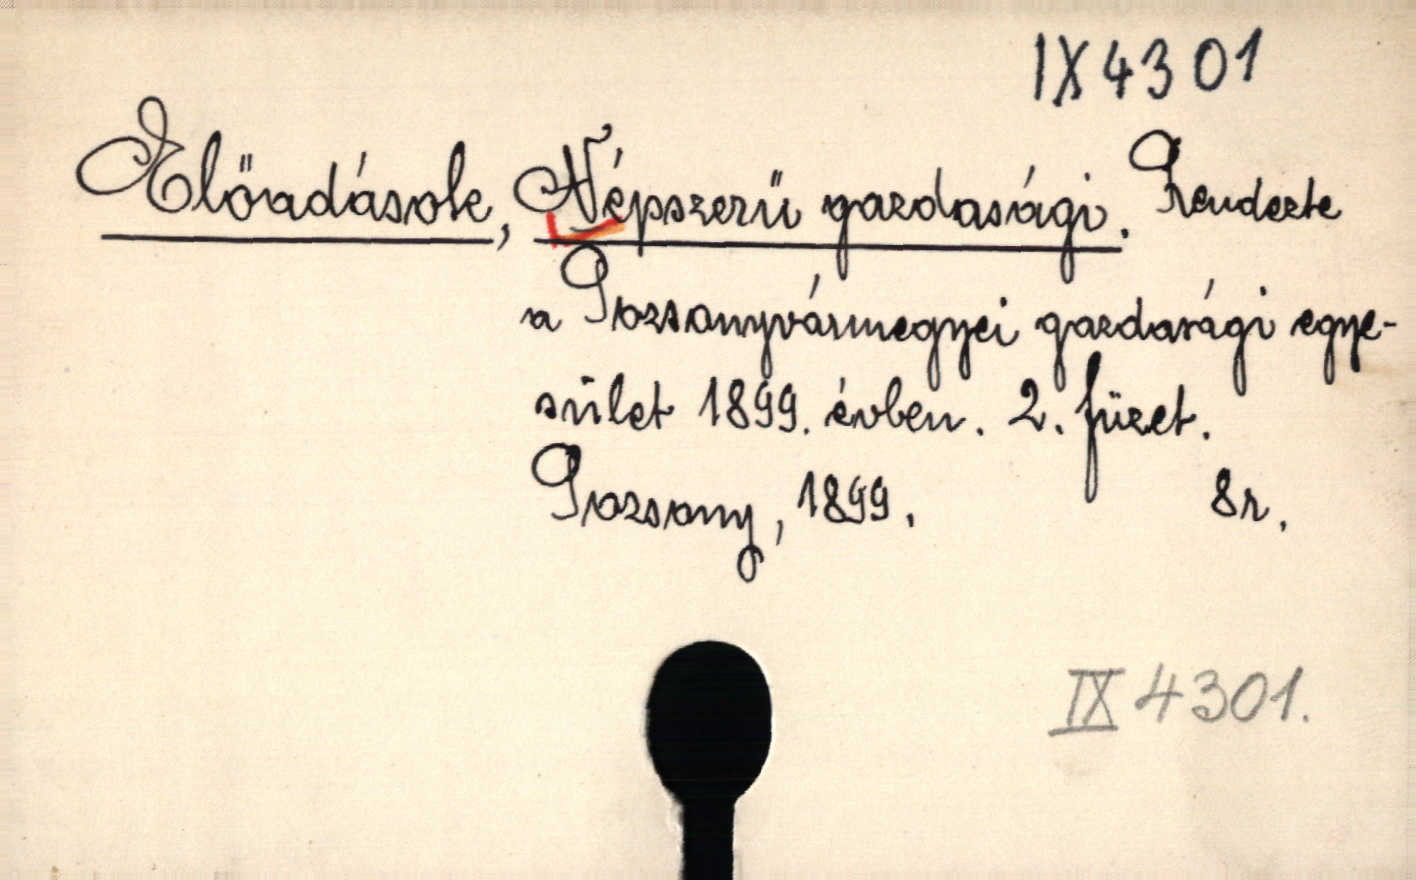 IX 4301
Előadások, Népszerü gazdasági. Rendezte
a Pozsonyvármegyei gazdasági egye-
sület 1899. évben. 2. füzet.
Pozsony, 1899. 8r.
IX 4301.